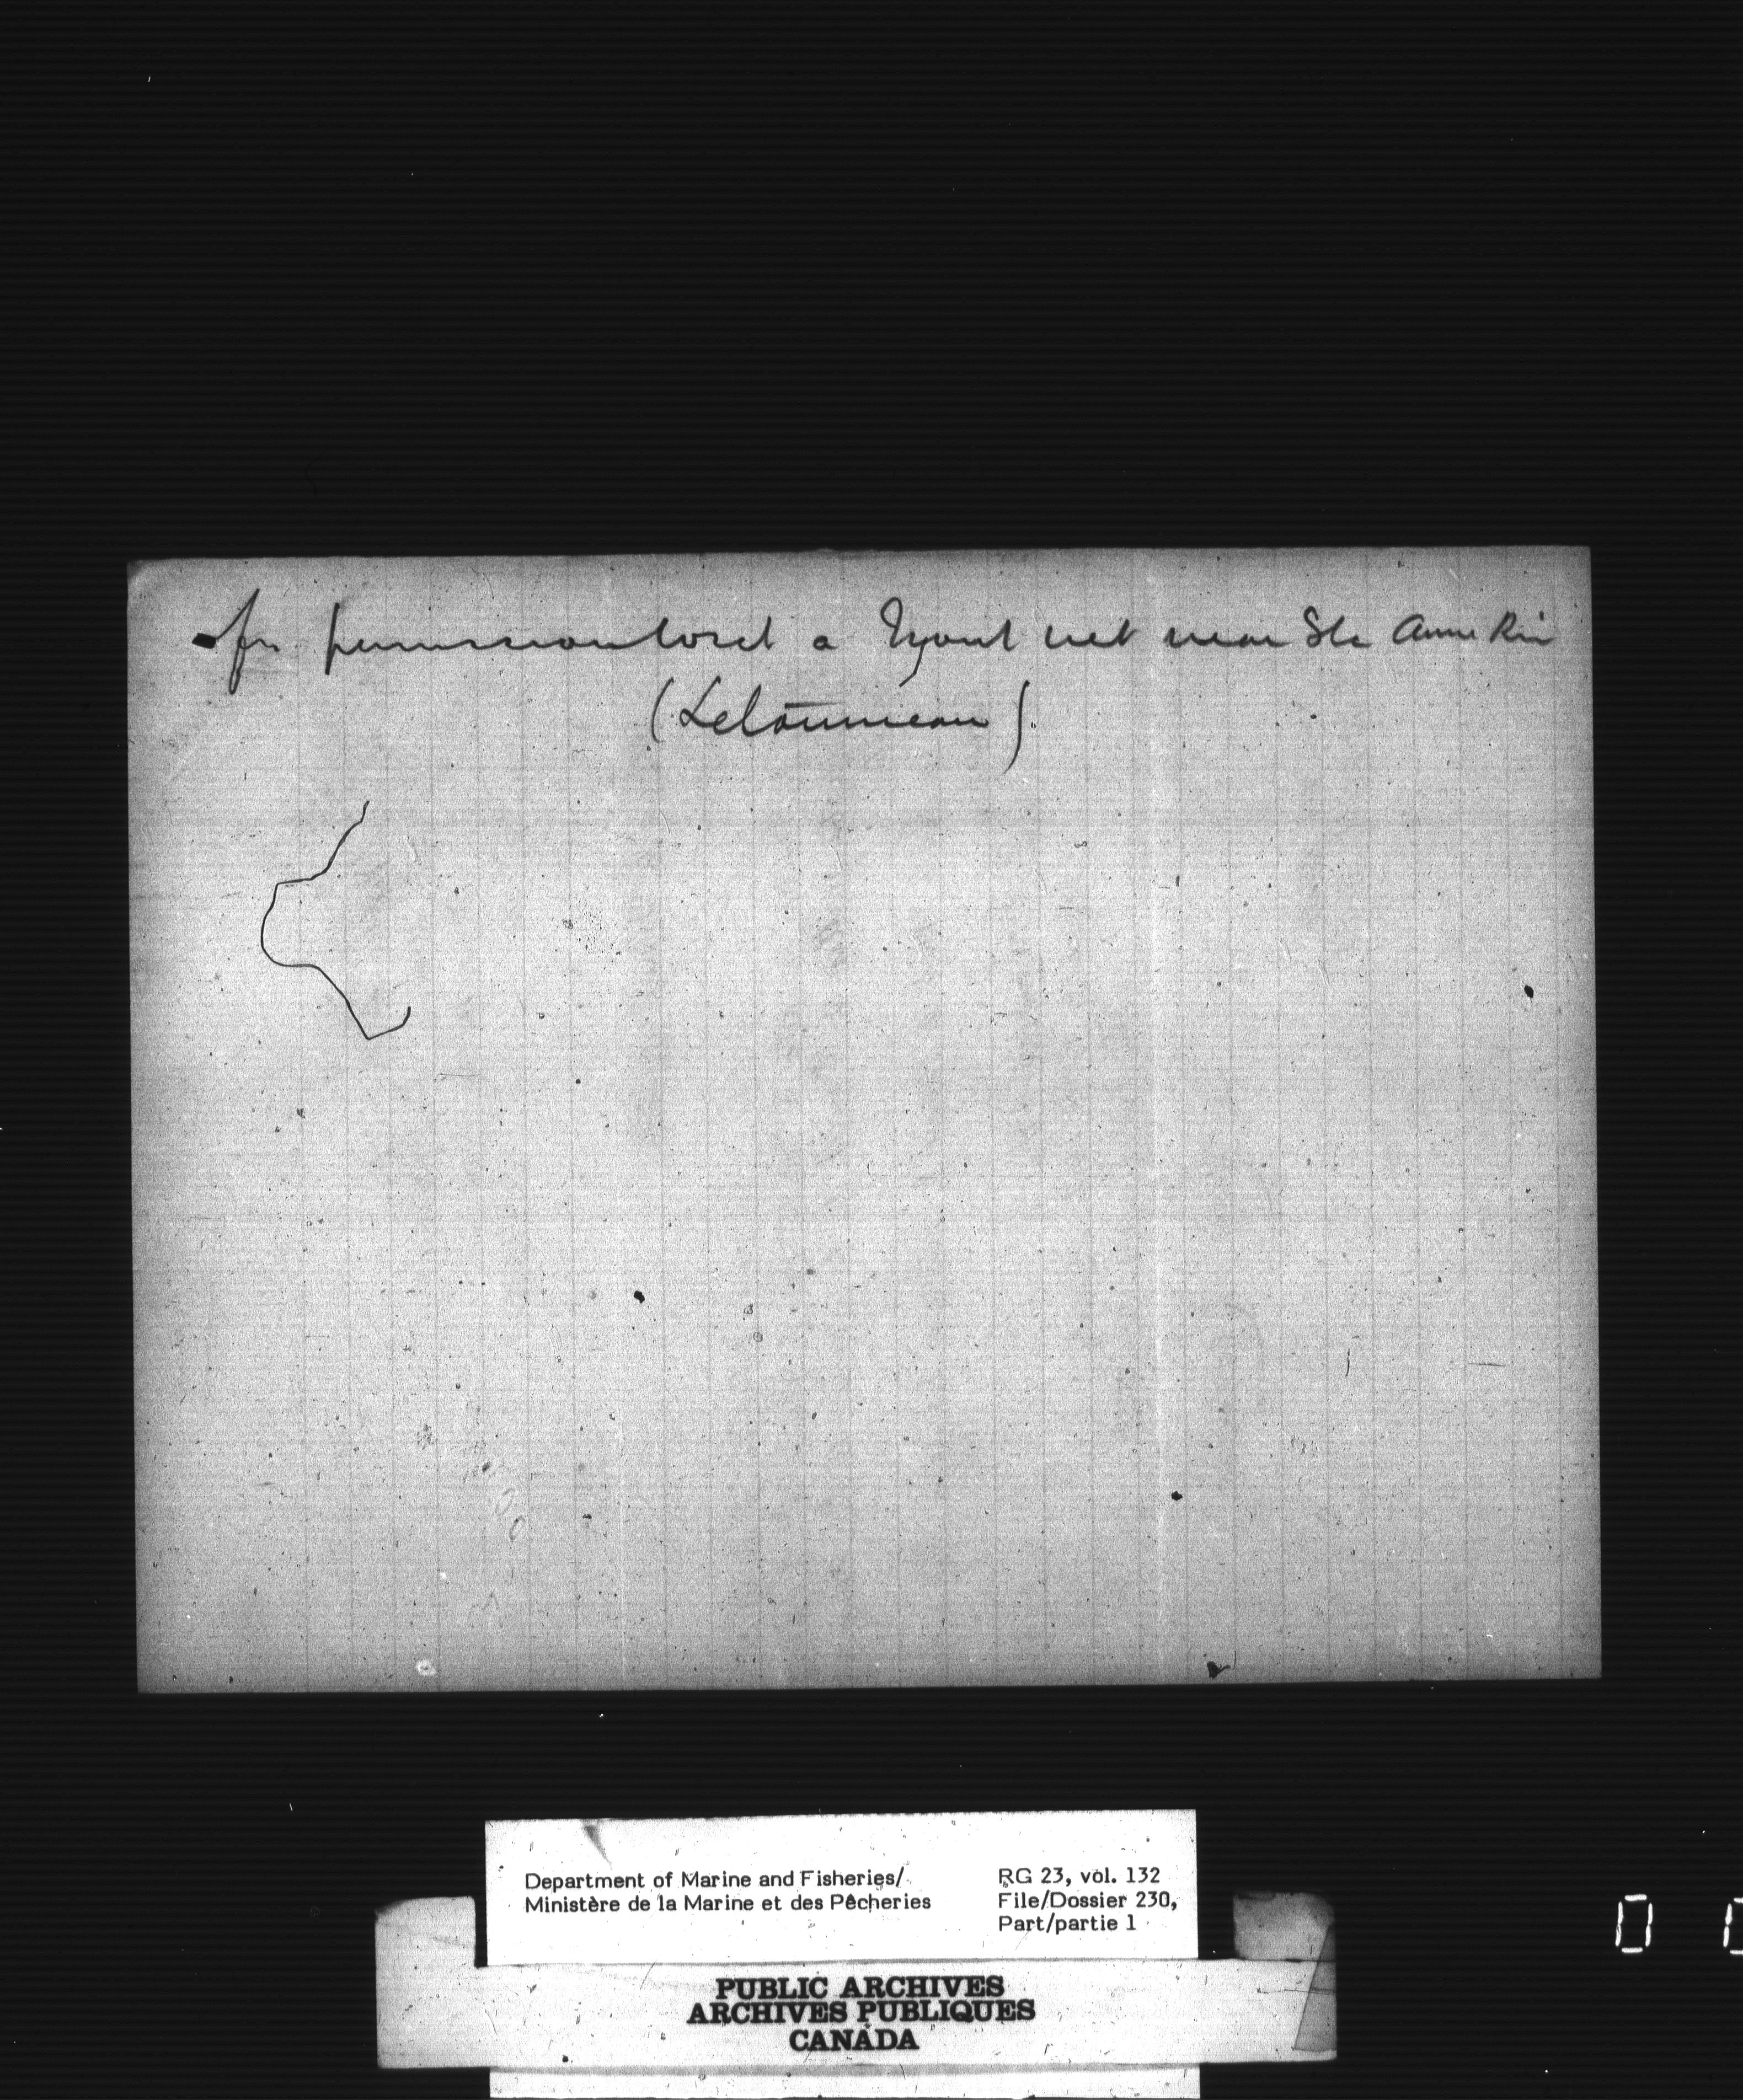 for permission to set a Trout net near Ste Anne Riv
(Letourneau)
Department of Marine and Fisheries/
Ministère de la Marine et des Pêcheries
RG 23, vol. 132
File/Dossier 230,
Part/partie 1
PUBLIC ARCHIVES
ARCHIVES PUBLIQUES
CANADA
0